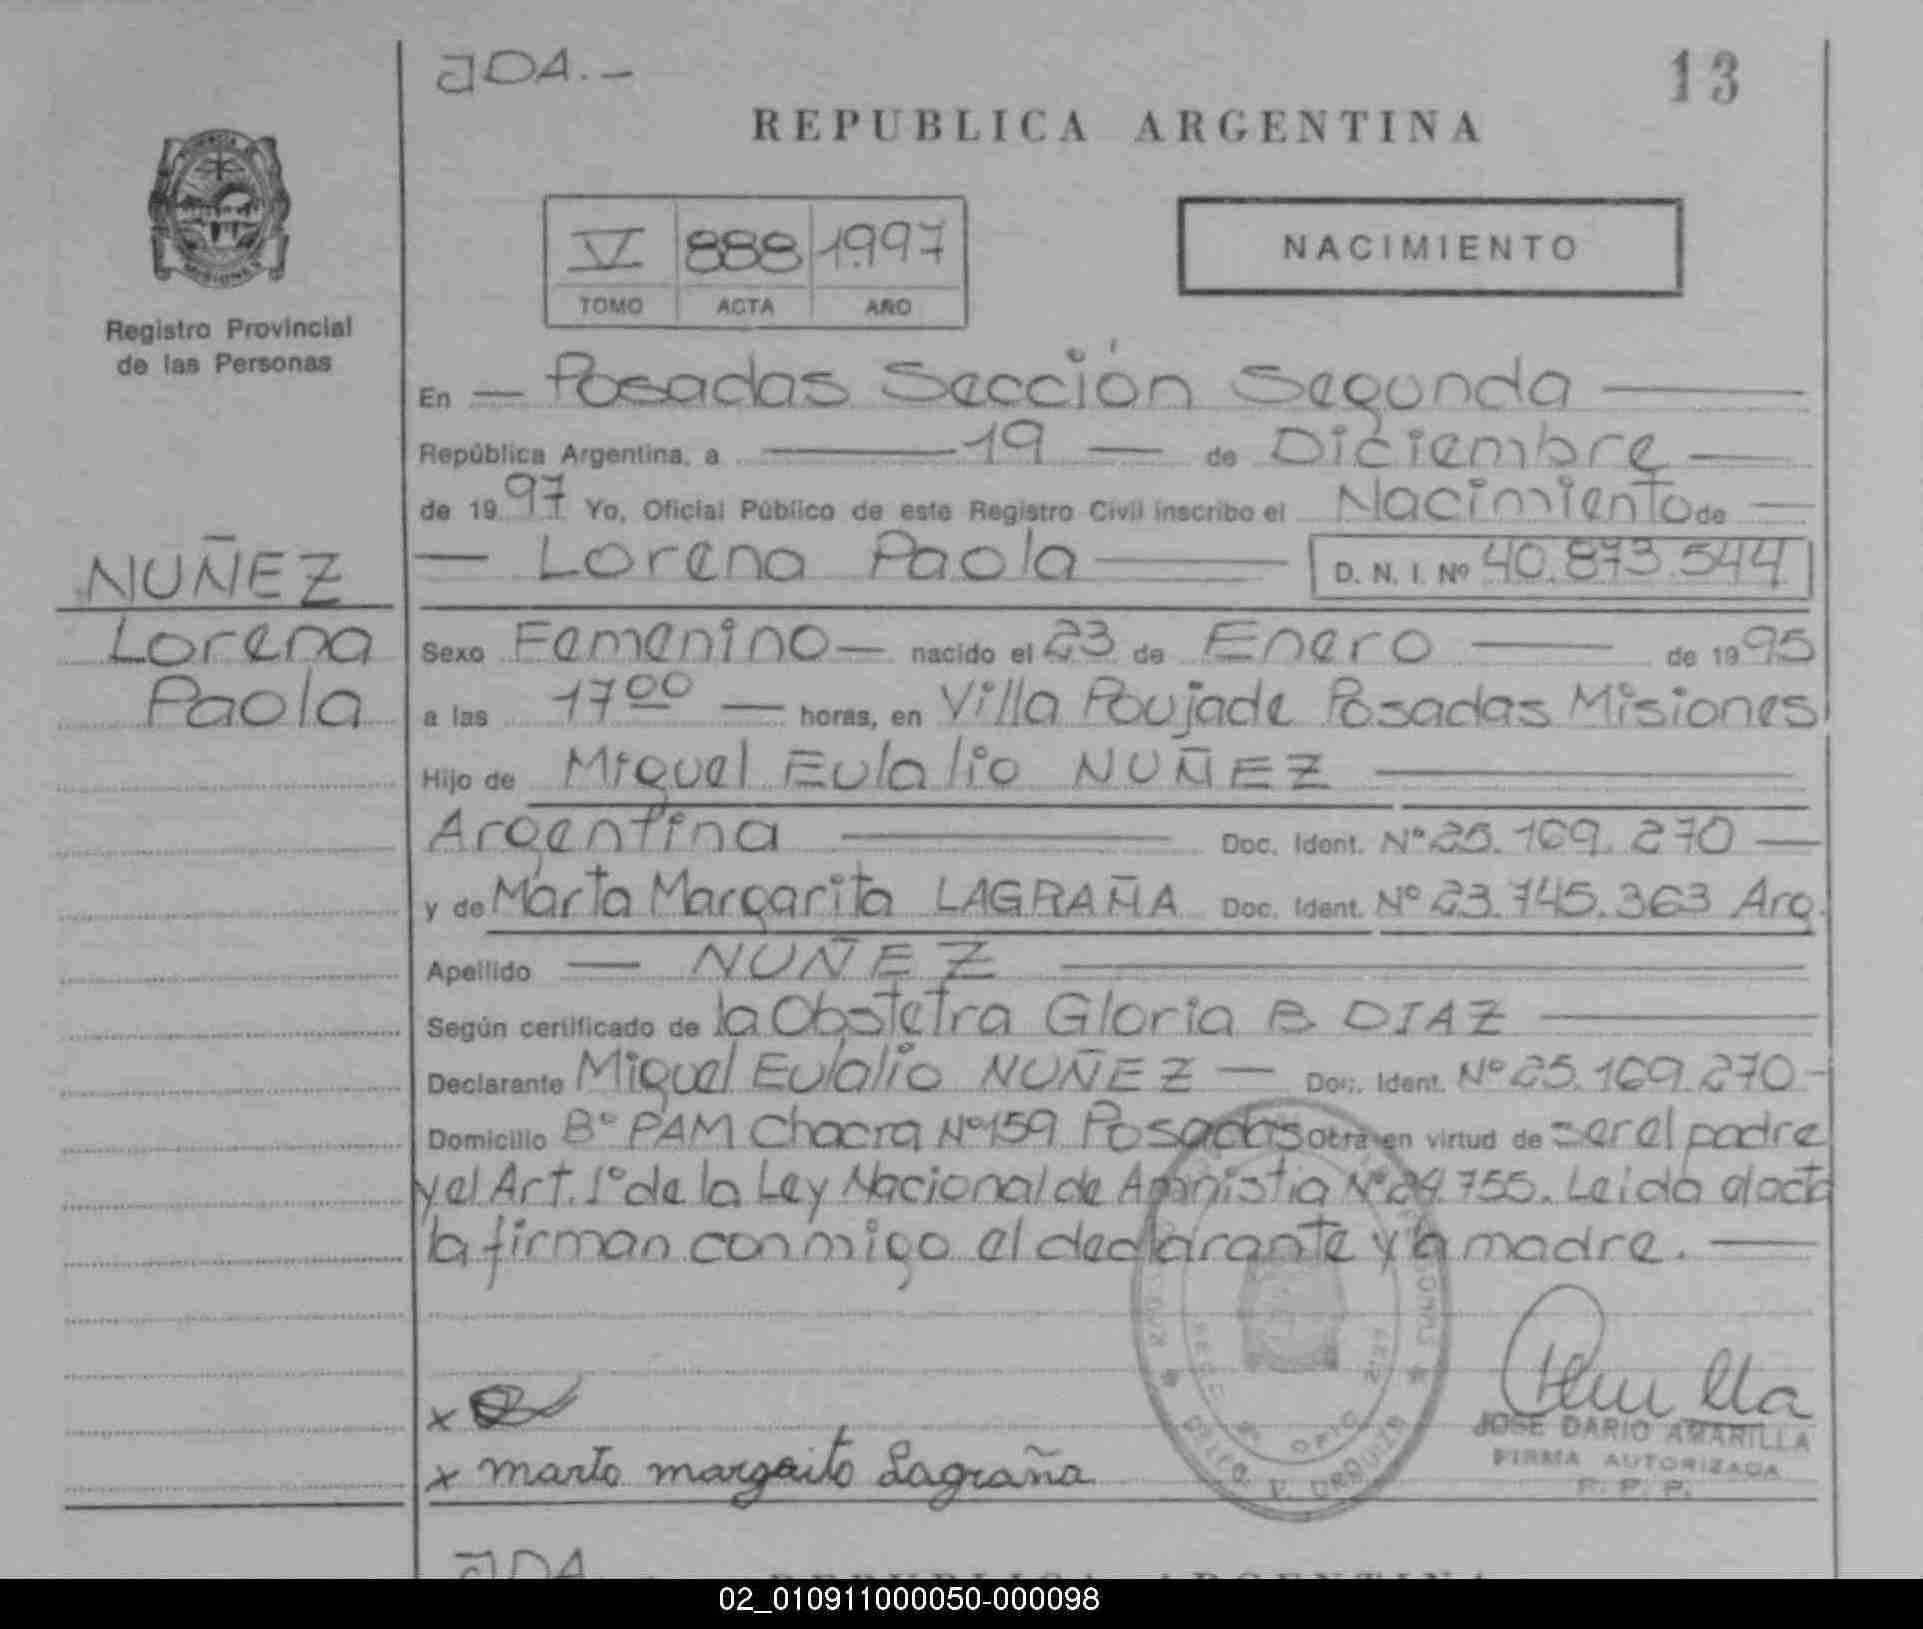 JDA.-
13
REPUBLICA ARGENTINA
MISIONES
Registro Provincial
de las Personas
V 888 1997
TOMO ACTA AÑO
NACIMIENTO
En — Posadas Sección Segunda —
República Argentina, a — 19 — de Diciembre —
de 1997 Yo, Oficial Público de este Registro Civil inscribo el Nacimiento de —
— Lorena Paola — D. N. I. Nº 40.873.544
NUÑEZ
Lorena
Paola
Sexo Femenino — nacido el 23 de Enero — de 1995
a las 17 00 — horas, en Villa Poujade Posadas Misiones
Hijo de Miguel Eulalio NUÑEZ —
Argentina — Doc. Ident. Nº 25.169.270 —
y de Marta Margarita LAGRAÑA Doc. Ident. Nº 23.745.363 Arg.
Apellido — NUÑEZ —
Según certificado de la Obstetra Gloria B DIAZ —
Declarante Miguel Eulalio NUÑEZ — Doc. Ident. Nº 25.169.270 -
Domicilio Bº PAM Chacra Nº 159 Posadas Obra en virtud de ser el padre
y el Art. 1º de la Ley Nacional de Amnistia Nº 24.755. Leida el acta
la firman conmigo el declarante y la madre. —
x
x marta margarita Lagraña
JOSE DARIO AMARILLA
FIRMA AUTORIZADA
R. P. P.
JDA
REPUBLICA ARGENTINA
02_010911000050-000098